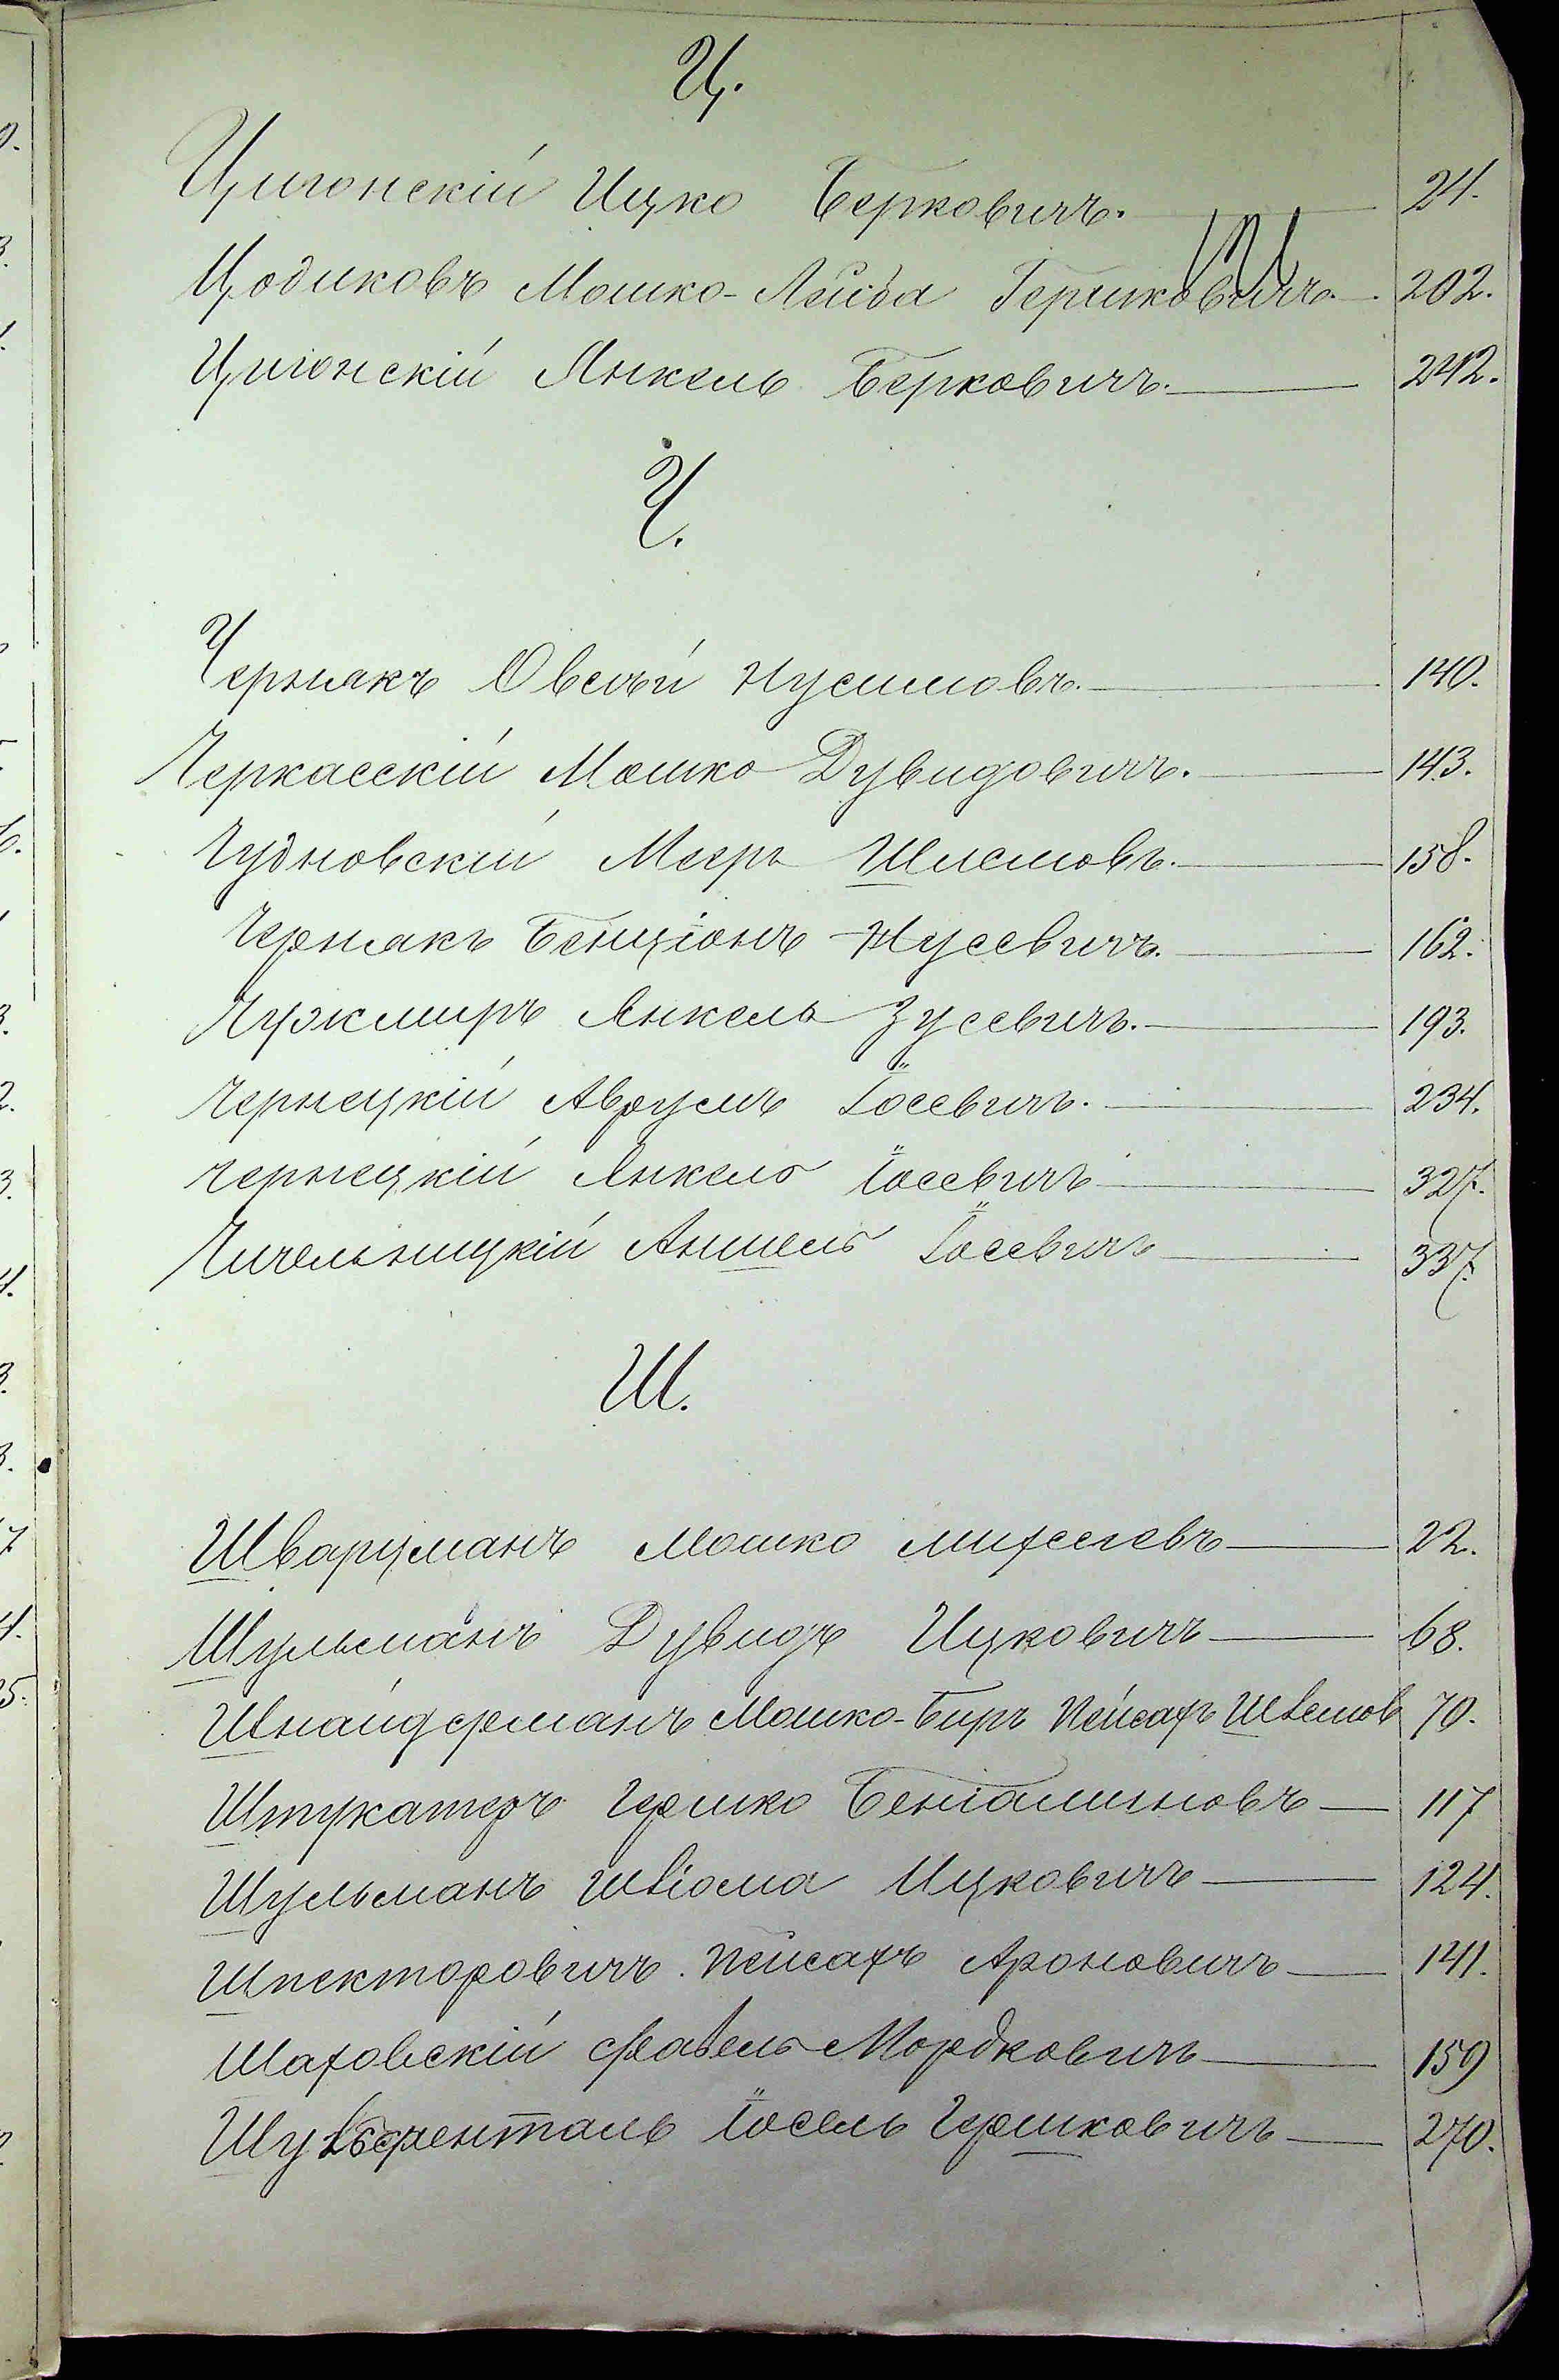 Ц.
Цигонскій Ицко Берковичъ. 24.
Цодиковъ Мошко-Лейба Гершковичъ. 202.
Цигонскій Янкель Берковичъ. 242.
Ч.
Чернякъ Овсѣй Нусимовъ. 140.
Черкасскій Мошко Дувидовичъ. 143.
Чудновскій Мееръ Шлемовъ. 158.
Чернякъ Бенціонъ Нусевичъ. 162.
Чужмиръ Янкель Зусевичъ. 193.
Чернецкій Аврумъ Іосевичъ. 234.
Чернецкій Янкель Іосевичъ 327.
Чичельницкій Аншель Іосевичъ 337.
Ш.
Шварцманъ Мошко Михелевъ 22.
Шульманъ Дувидъ Ицковичъ 68.
Шнайдерманъ Мошко-Биръ Пейсахъ 70.
Штукатеръ Гершко Беніаминовъ 117
Шульманъ Шліома Ицковичъ 124.
Шпекторовичъ. Пейсахъ Ароновичъ 141.
Шаховскій Мордковичъ 159
Іосель Гершковичъ 270.